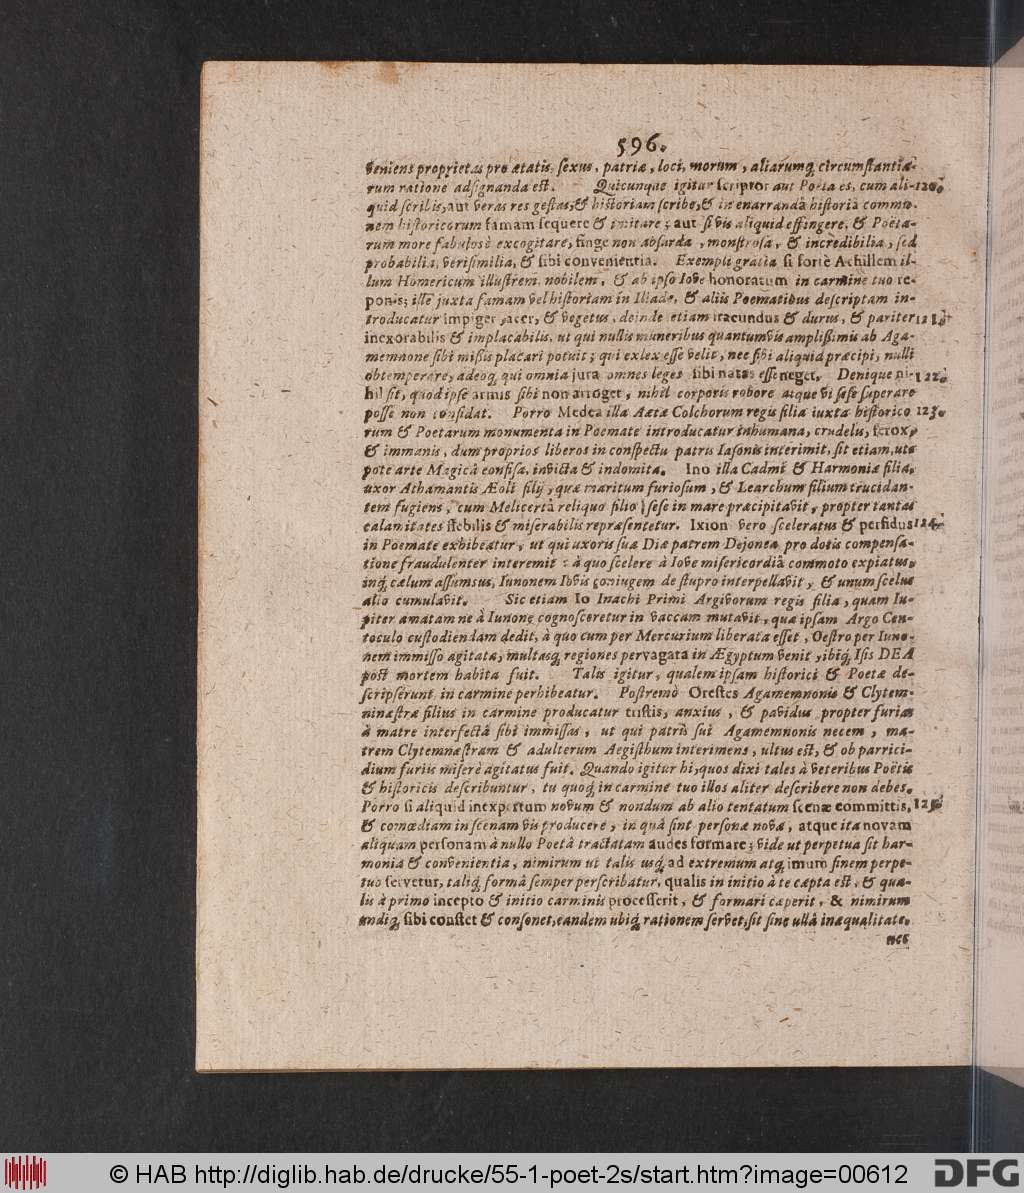 596.
venient proprietas pro ætatis, sexus, patriæ, loci, morum, aliarumq́ circumstantia-
rum ratione adsignanda est. Quicunque igitur scriptor aut Poëta es, cum ali- 120.
quid scribis, aut veras res gestas, & historiam scribe, & in enarrandâ historiâ commu-
nem historicorum famam sequere & imitare; aut si vis aliquid effingere, & Poëta-
rum more fabulosè excogitare, finge non absurda, monstrosa, & incredibilia, sed
probabilia, verisimilia, & sibi convenientia. Exempli gratia si fortè Achillem il-
lum Homericum illustrem, nobilem, & ab ipso Iove honoratum in carmine tuo re-
ponis; ille juxta famam vel historiam in Iliade, & aliis Poematibus descriptam in-
troducatur impiger, acer, & vegetus, deinde etiam iracundus & durus, & pariter 121.
inexorabilis & implacabilis, ut qui nullis muneribus quantumvis amplißimis ab Aga-
memnone sibi mißis placari potuit; qui exlex esse velit, nec sibi aliquid præcipi, nulli
obtemperare, adeoq́ qui omnia jura omnes leges sibi natas esse neget. Denique ni- 122.
hil sit, quod ipse armis sibi non arroget, nihil corporis robore atque vi sese superare
posse non confidat. Porro Medea illa Aetæ Colchorum regis filia iuxta historico 123.
rum & Poetarum monumenta in Poemate introducatur inhumana, crudelis, ferox,
& immanis, dum proprios liberos in conspectu patris Iasonis interimit, sit etiam, ut-
pote arte Magicâ confisa, invicta & indomita. Ino illa Cadmi & Harmoniæ filia,
uxor Athamantis Æoli filij, quæ maritum furiosum, & Learchum filium trucidan-
tem fugiens, cum Melicertâ reliquo filio sese in mare præcipitavit, propter tantas
calamitates flebilis & miserabilis repræsentetur. Ixion vero sceleratus & perfidus 124.
in Poemate exhibeatur, ut qui uxoris suæ Diæ patrem Dejonea pro dotis compensa-
tione fraudulenter interemit: à quo scelere à Iove misericordiâ commoto expiatus,
inq́ cælum assumsus, Iunonem Iovis conjugem de stupro interpellavit, & unum scelus
alio cumulavit. Sic etiam Io Inachi Primi Argivorum regis filia, quam Iu-
piter amatam ne à Iunone cognosceretur in vaccam mutavit, quæ ipsam Argo Cen-
toculo custodiendam dedit, à quo cum per Mercurium liberata esset, Oestro per Iuno-
nem immisso agitata, multasq́ regiones pervagata in Ægyptum venit, ibiq́ Isis DEA
post mortem habita fuit. Talis igitur, qualem ipsam historici & Poetæ de-
scripserunt, in carmine perhibeatur. Postremò Orestes Agamemnonis & Clytem-
ninæstræ filius in carmine producatur tristis, anxius, & pavidus propter furias
à matre interfectâ sibi immissas, ut qui patris sui Agamemnonis necem, ma-
trem Clytemnæstram & adulterum Aegisthum interimens, ultus est, & ob parrici-
dium furiis miserè agitatus fuit. Quando igitur hi, quos dixi tales à veteribus Poëtis
& historicis describuntur, tu quoq́ in carmine tuo illos aliter describere non debes.
Porro si aliquid inexpertum novum & nondum ab alio tentatum scenæ committis, 125.
& comœdiam in scenam vis producere, in quâ sint personæ novæ, atque ita novam
aliquam personam à nullo Poetâ tractatam audes formare; vide ut perpetua sit har-
monia & convenientia, nimirum ut talis usq́ ad extremum atq́ imum finem perpe-
tuo servetur, taliq́ formâ semper perscribatur, qualis in initio à te cæpta est, & qua-
lis à primo incepto & initio carminis processerit, & formari cæperit, & nimirum
undiq́ sibi constet & consonet, eandem ubiq́ rationem servet, sit sine ullâ inæqualitate,
nec
© HAB http://diglib.hab.de/drucke/55-1-poet-2s/start.htm?image=00612
DFG